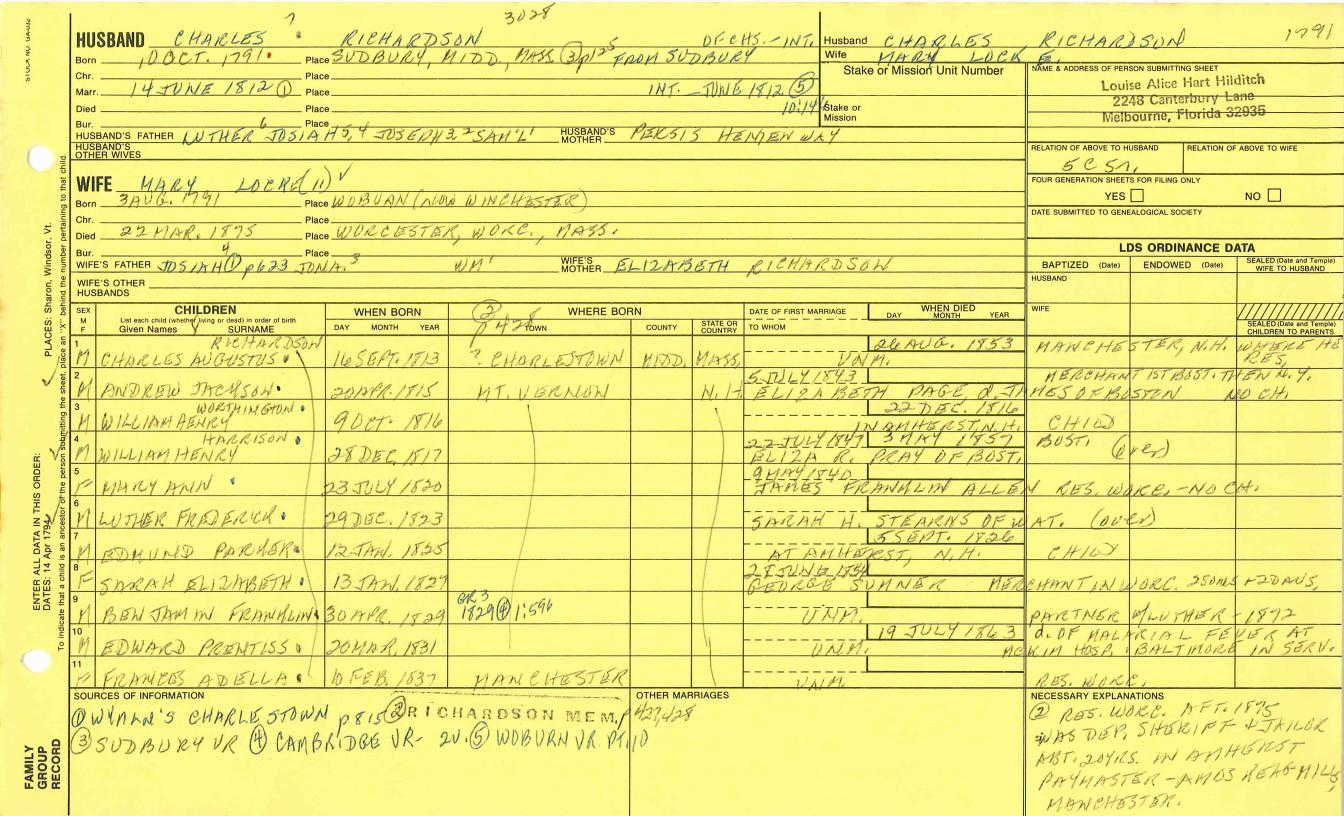 7
3028
1791
HUSBAND CHARLES RICHARDSON OF CHS.-INT.
Born 10 OCT. 1791 Place SUDBURY, MIDD, MASS. ③ p125 FROM SUDBURY
Chr. Place
Marr. 14 JUNE 1812 ① Place INT. - JUNE 1812 ⑤
10:141
Died Place
Bur. Place
HUSBAND'S FATHER LUTHER 6 JOSIAH 5,4 JOSEPH 3,2 SAM'L 1 HUSBAND'S MOTHER PERSIS HEMENWAY
HUSBAND'S OTHER WIVES
Husband CHARLES RICHARDSON
Wife MARY LOCKE
Stake or Mission Unit Number
Stake or Mission
NAME & ADDRESS OF PERSON SUBMITTING SHEET
Louise Alice Hart Hilditch
2248 Canterbury Lane
Melbourne, Florida 32935
RELATION OF ABOVE TO HUSBAND RELATION OF ABOVE TO WIFE
5 C 5r.
FOUR GENERATION SHEETS FOR FILING ONLY
YES NO
DATE SUBMITTED TO GENEALOGICAL SOCIETY
WIFE MARY LOCKE (11) ✓
Born 3 AUG. 1791 Place WOBURN (NOW WINCHESTER)
Chr. Place
Died 22 MAR. 1875 Place WORCESTER, WORC., MASS.
Bur. Place
WIFE'S FATHER JOSIAH 4 ① p623 JONA. 3 WM 1 WIFE'S MOTHER ELIZABETH RICHARDSON
WIFE'S OTHER HUSBANDS
LDS ORDINANCE DATA
BAPTIZED (Date) ENDOWED (Date) SEALED (Date and Temple) WIFE TO HUSBAND
HUSBAND
WIFE
SEALED (Date and Temple) CHILDREN TO PARENTS
SEX M F
CHILDREN
List each child (whether living or dead) in order of birth
Given Names SURNAME
WHEN BORN
DAY MONTH YEAR
② p428
WHERE BORN
TOWN COUNTY STATE OR COUNTRY
DATE OF FIRST MARRIAGE
TO WHOM
WHEN DIED
DAY MONTH YEAR
1 M CHARLES AUGUSTUS RICHARDSON 16 SEPT. 1813 ? CHARLESTOWN MIDD. MASS. UNM. 26 AUG. 1853 MANCHESTER, N.H. WHERE HE RES.
2 M ANDREW JACKSON 20 APR. 1815 MT. VERNON N.H. 5 JULY 1843 ELIZABETH PAGE, d. JAMES OF BOSTON NO CH. MERCHANT 1ST BOST. THEN N.Y.
3 M WILLIAM HENRY WORTHINGTON 9 OCT. 1816 22 DEC. 1816 IN AMHERST, N.H. CHILD
4 M WILLIAM HENRY HARRISON 28 DEC. 1817 22 JULY 1847 3 MAY 1857 ELIZA R. PRAY OF BOST. BOST. (over)
5 F MARY ANN 23 JULY 1820 9 MAY 1840 JAMES FRANKLIN ALLEN RES. WORC. - NO CH.
6 M LUTHER FREDERICK 29 DEC. 1823 SARAH H. STEARNS OF WAT. (over)
7 M EDMUND PARKER 12 JAN. 1825 5 SEPT. 1826 AT AMHERST, N.H. CHILD
8 F SARAH ELIZABETH 13 JAN. 1827 GEORGE SUMNER MERCHANT IN WORC. 2 SONS + 2 DAUS.
9 M BENJAMIN FRANKLIN 30 APR. 1829 GR.3 1829 ④ 1:596 UNM. PARTNER W/LUTHER - 1872
10 M EDWARD PRENTISS 20 MAR. 1831 UNM. 19 JULY 1863 d. OF MALARIAL FEVER AT McKIM HOSP. BALTIMORE IN SERV.
11 F FRANCES ADELLA 10 FEB 1837 MANCHESTER UNM. RES. WORC.
SOURCES OF INFORMATION
① WYMAN'S CHARLESTOWN p815 ② RICHARDSON MEM. p 427,428
③ SUDBURY VR ④ CAMBRIDGE VR- 2V. ⑤ WOBURN VR PT.10
OTHER MARRIAGES
NECESSARY EXPLANATIONS
② RES. WORC. AFT. 1875
WAS DEP. SHERIFF + JAILOR
ABT. 20 YRS. IN AMHERST
PAYMASTER - AMOS MILLS,
MANCHESTER.
PLACES: Sharon, Windsor, Vt.
ENTER ALL DATA IN THIS ORDER:
DATES: 14 Apr 1794
To indicate that a child is an ancestor of the person submitting the sheet, place an "X" behind the number pertaining to that child.
FAMILY GROUP RECORD